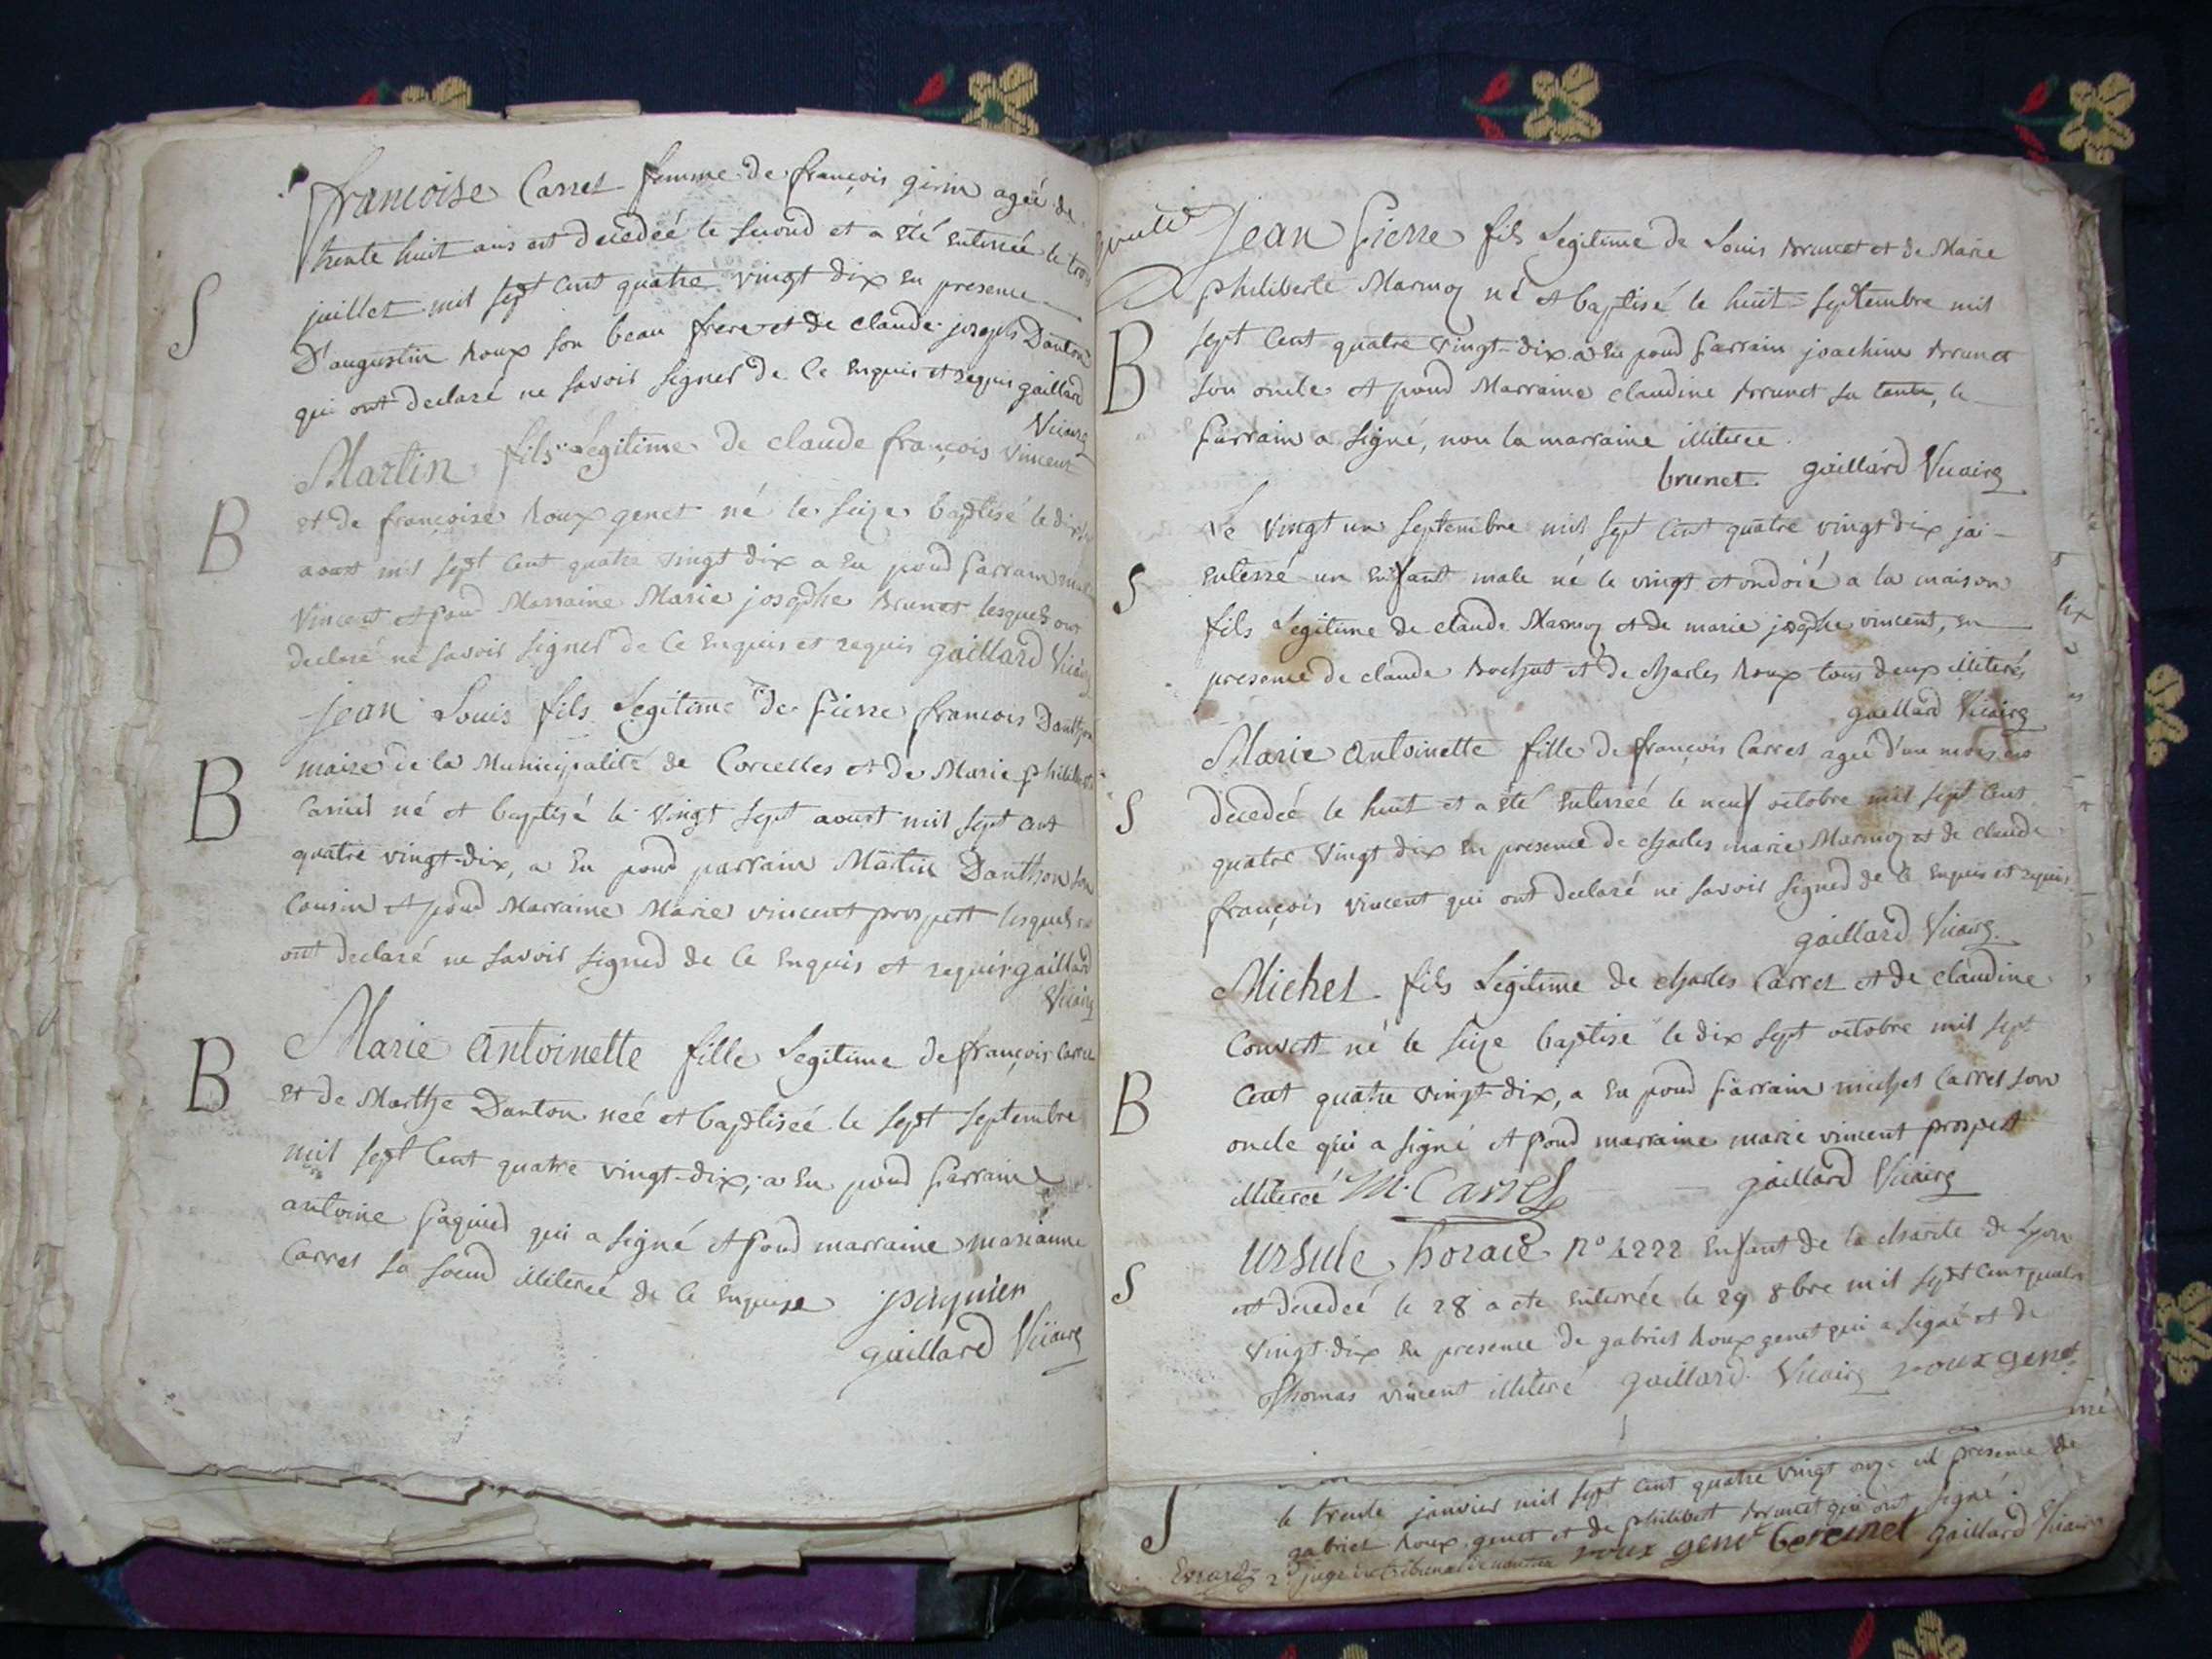 françoise Carret femme de françois girin ageé de
trente huit ans est decedeé le second et a été enterreé le trois
juillet mil sept cent quatre vingt dix en presence
S
D'augustin Roux son beau frere et de claude joseph Danton
qui ont declaré ne savoir signer de ce enquis et requis gaillard
Vicaire
Martin fils Legitime de claude françois vincent
B
et de françoise Roux genet né le seize baptisé le dix
aoust mil sept cent quatre vingt dix a eu pour parrain
Vincent et pour Marraine Marie josephe Brunet lesquels ont
declaré ne savoir signer de ce enquis et requis gaillard Vicaire
jean Louis fils Legitime de pierre françois Danthon
B
maire de la Municipalité de Corcelles et de Marie philiberte
Carrier né et baptisé le vingt sept aoust mil sept cent
quatre vingt-dix, a eu pour parrain Martin Danthon son
Cousin et pour Marraine Marie vincent prospert lesquels
ont declaré ne savoir signer de ce enquis et requis gaillard
Vicaire
B
Marie antoinette fille Legitime de françois Carret
et de Marthe Danton neé et baptiseé le sept septembre
mil sept cent quatre vingt-dix, a eu pour parrain
antoine paquier qui a signé et pour marraine marianne
Carret sa soeur illitereé de ce enquise paquier
gaillard Vicaire
Jean pierre fils Legitime de Louis Brunet et de Marie
philiberte Marmoz né et baptisé le huit septembre mil
B
sept cent quatre vingt-dix a eu pour parrain joachim Brunet
son oncle et pour Marraine claudine Brunet sa tante, le
parrain a signé, non la marraine illiteree.
brunet gaillard Vicaire
Le vingt un septembre mil sept cent quatre vingt dix jai
S
enterré un enfant male né le vingt et ondoié a la maison
fils Legitime de claude Marmoz et de marie josephe vincent, en
presence de claude Bochut et de charles Roux tous deux illiterés
gaillard Vicaire
Marie antoinette fille de françois Carret ageé d'un mois est
S
decedeé le huit et a été enterreé le neuf octobre mil sept cent
quatre vingt dix en presence de charles marie Marmoz et de claude
françois vincent qui ont declaré ne savoir signer de ce enquis et requis
gaillard Vicaire
Michel fils Legitime de charles Carret et de claudine
Convert né le seize baptisé le dix sept octobre mil sept
B
cent quatre vingt-dix, a eu pour parrain michel Carret son
oncle qui a signé et pour marraine marie vincent prospert
illitereé M. Carret gaillard Vicaire
Ursule horace n° 4222 enfant de la charité de Lyon
S
est decedeé le 28 a ete enterrée le 29 8bre mil sept cent quatre
vingt-dix en presence de gabriel Roux genet qui a signé et de
Thomas vincent illiteré gaillard Vicaire roux genet
S
le trente janvier mil sept cent quatre vingt onze en presence de
gabriel Roux genet et de philibert Brunet qui ont signé.
roux genet brunet gaillard Vicaire
2d juge